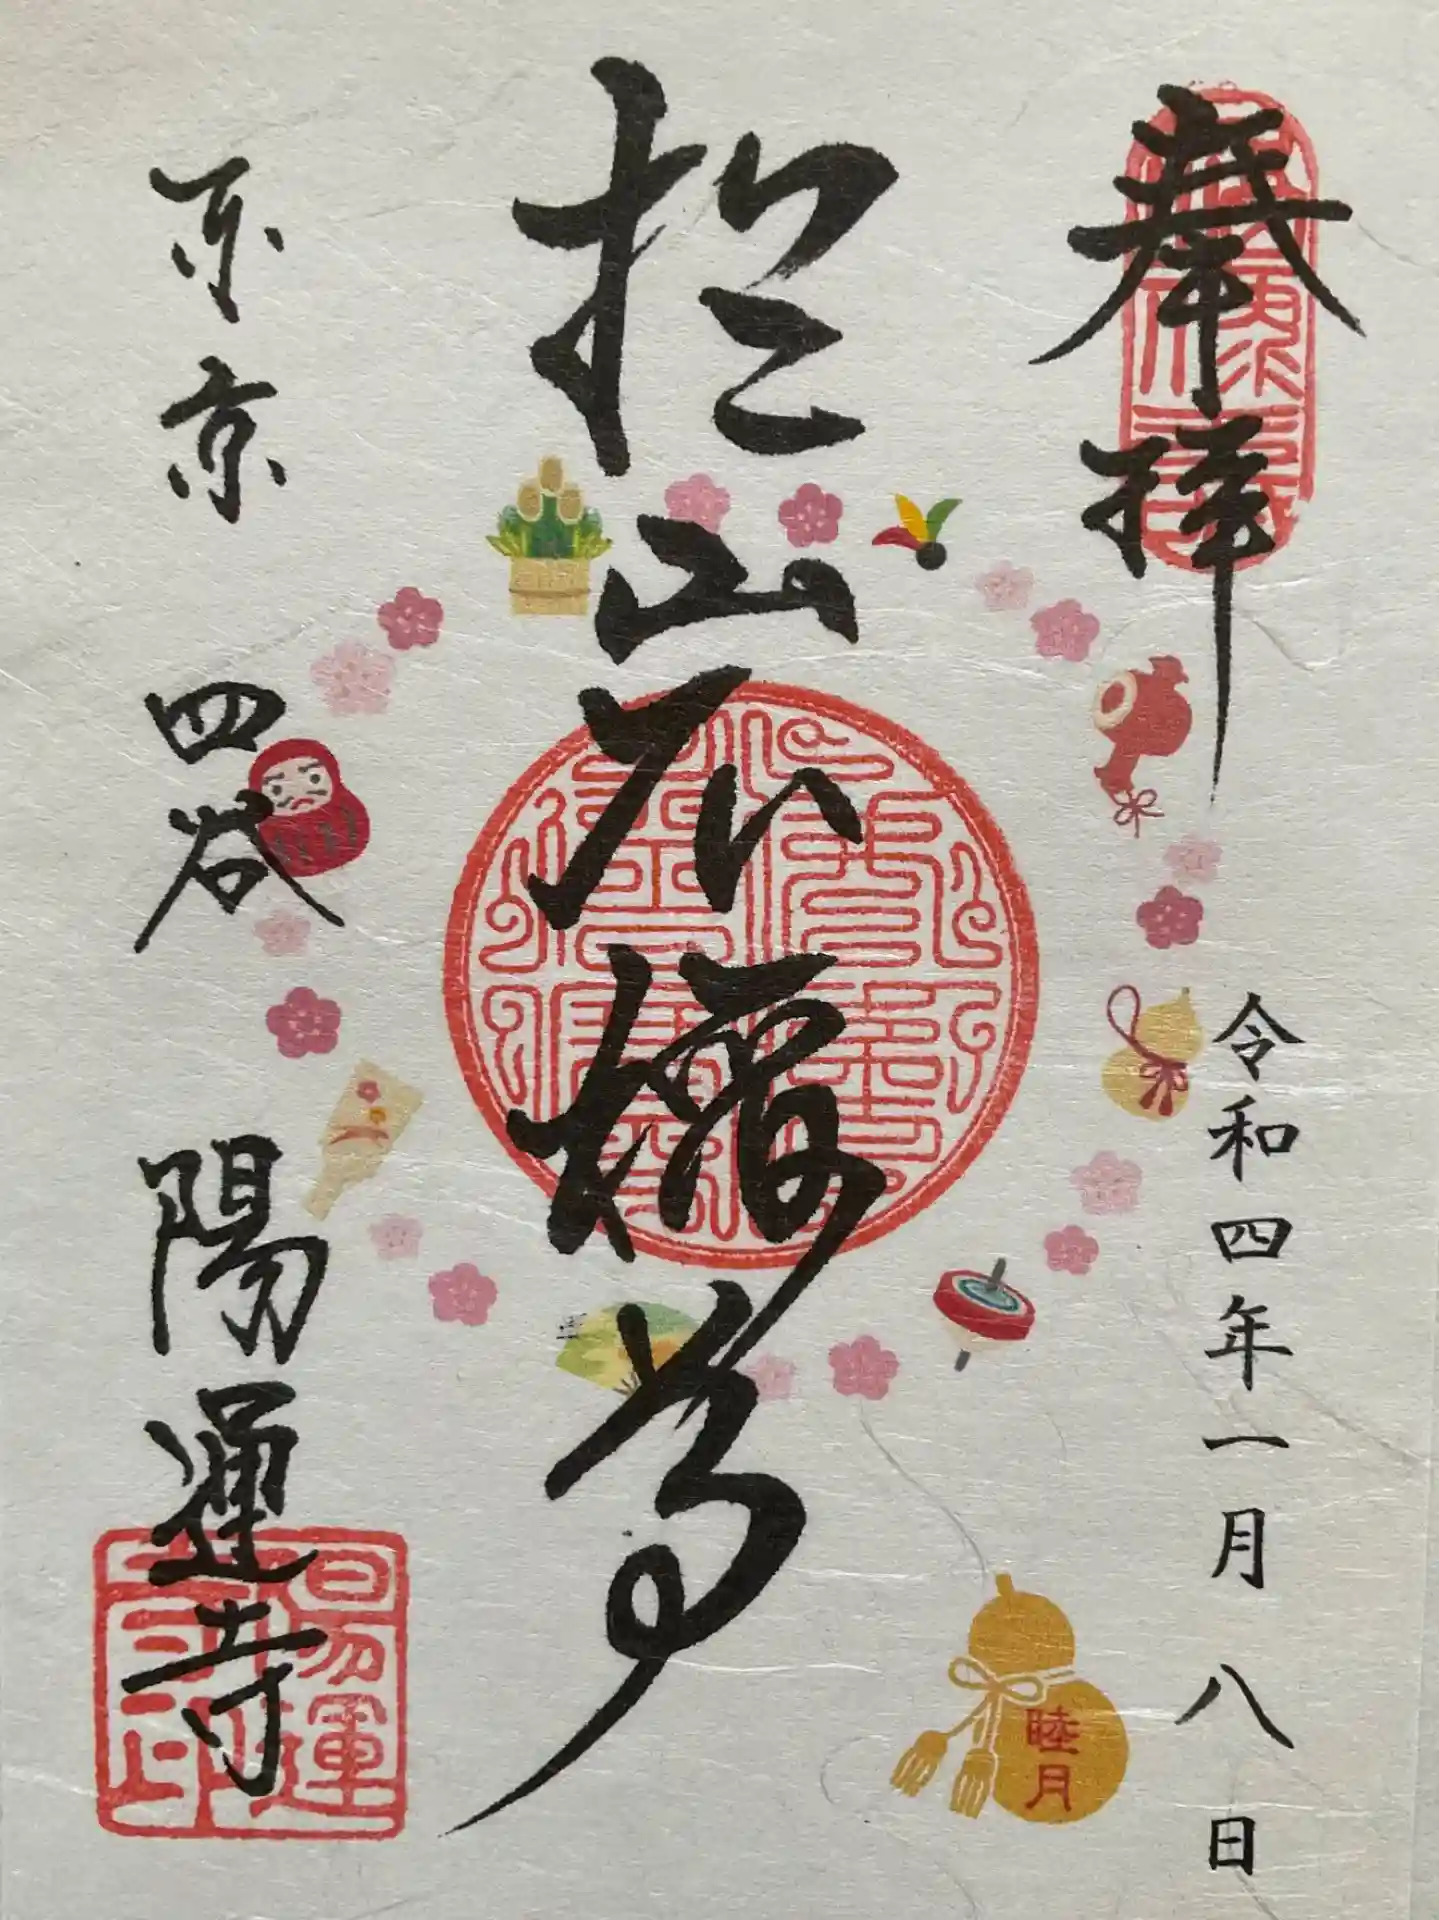 奉拝
令和四年一月八日
扵岩尊
睦月
東京四谷陽運寺
陽運寺印